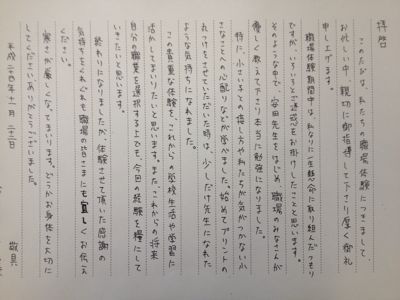 拝啓
このたびは、私たちの職場体験につきまして
お忙しい中、親切に御指導して下さり厚く御礼
申し上げます。
職場体験期間中は、私なりに一生懸命に取り組んだつもり
ですが、いろいろとご迷惑をお掛けしたことと思います。
そのような中で、安田先生をはじめ、職場のみなさんが
優しく教えて下さり本当に勉強となりました。
特に、小さい子との接し方や私たちが気がつかない小
さなことへの心配りなどが学べました。始めてプリントの
丸つけをさせていただいた時は、少しだけ先生になれた
ような気持ちになれました。
この貴重な体験を、これからの学校生活や学習に
活かしてまいりたいと思います。また、これからの将来
自分の職業を選択する上でも、今回の経験を糧にして
いきたいと思います。
終わりになりましたが、体験させて頂いた感謝の
気持ちをくれぐれも職場の皆さまにも宜しくお伝え
ください。
寒さが厳しくなってまいります。どうかお身体を大切に
してくださいありがとうございました。
敬具
平成二十四年十一月二十三日